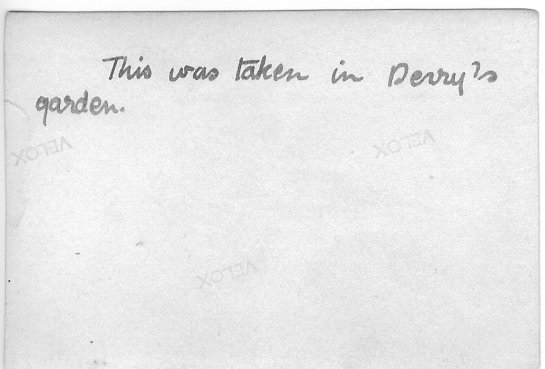 This was taken in Derry's
garden.
VELOX VELOX
VELOX